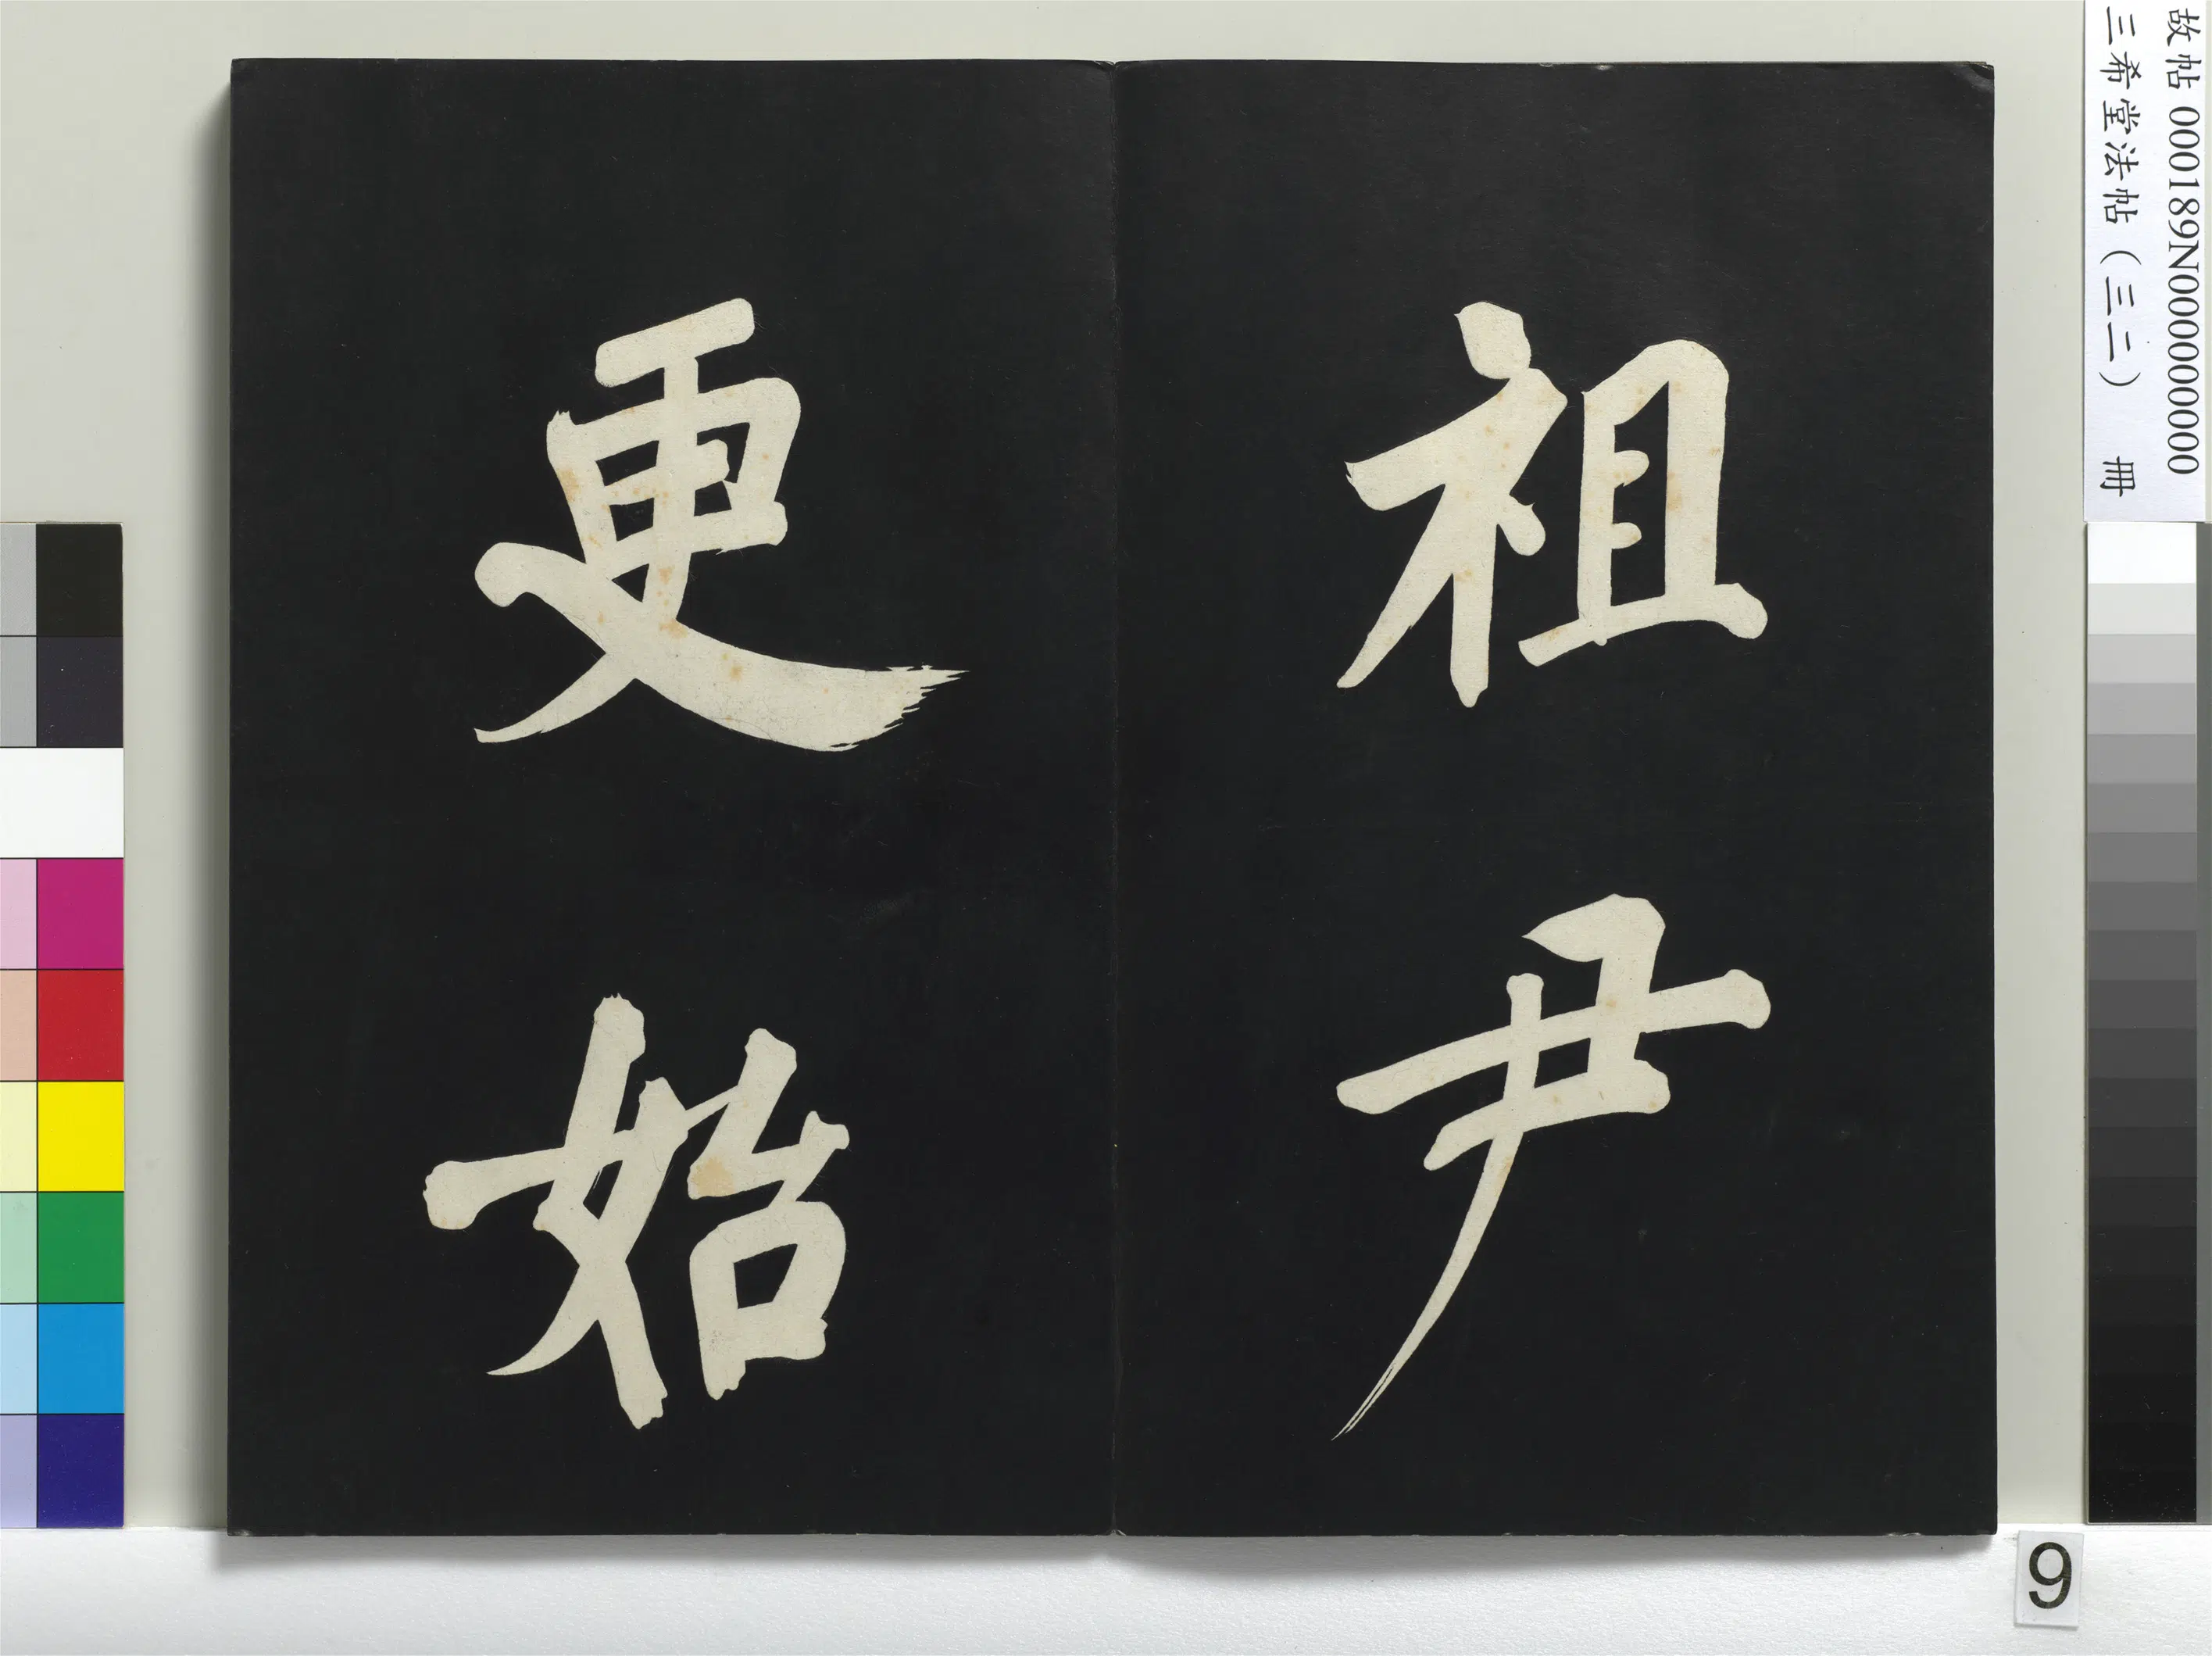 故帖 000189N000000000
三希堂法帖（三二） 冊
祖尹
更始
9